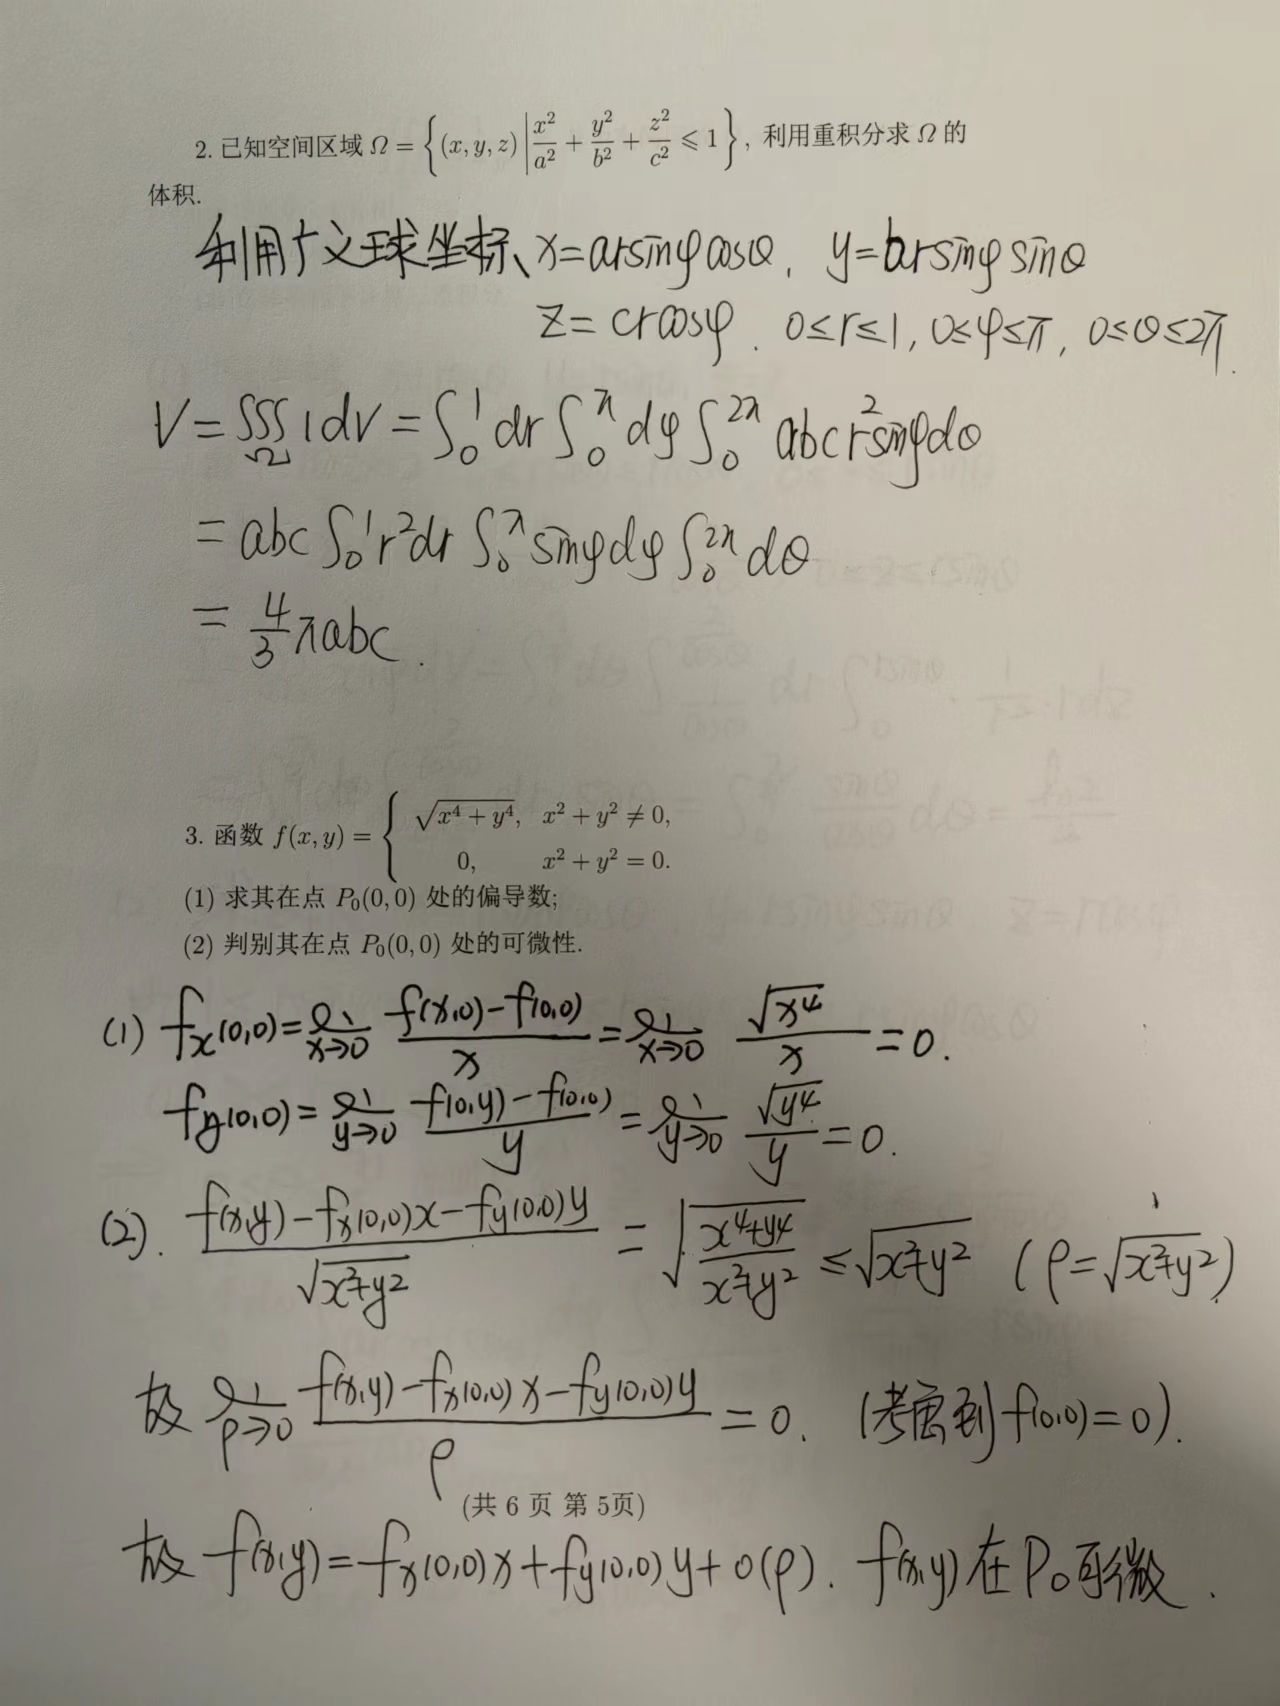 2. 已知空间区域 Ω = {(x, y, z) | x²/a² + y²/b² + z²/c² ⩽ 1}, 利用重积分求 Ω 的
体积.
利用广义球坐标、x=arsinφcosθ, y=brsinφsinθ
z=crcosφ. 0≤r≤1, 0≤φ≤π, 0≤θ≤2π.
V=∭_Ω 1dV=∫₀¹dr∫₀^π dφ∫₀^{2π} abcr²sinφdθ
=abc∫₀¹r²dr∫₀^π sinφdφ∫₀^{2π}dθ
=4/3 πabc.
3. 函数 f(x, y) = { √(x⁴ + y⁴), x² + y² ≠ 0,
0, x² + y² = 0.
(1) 求其在点 P₀(0, 0) 处的偏导数;
(2) 判别其在点 P₀(0, 0) 处的可微性.
(1) fₓ(0,0)=lim_{x→0} (f(x,0)-f(0,0))/x=lim_{x→0} √(x⁴)/x=0.
f_y(0,0)=lim_{y→0} (f(0,y)-f(0,0))/y=lim_{y→0} √(y⁴)/y=0.
(2). (f(x,y)-fₓ(0,0)x-f_y(0,0)y)/√(x²+y²)=√((x⁴+y⁴)/(x²+y²))≤√(x²+y²) (ρ=√(x²+y²)).
故 lim_{ρ→0} (f(x,y)-fₓ(0,0)x-f_y(0,0)y)/ρ=0. (考虑到f(0,0)=0).
(共 6 页 第 5页)
故 f(x,y)=fₓ(0,0)x+f_y(0,0)y+o(ρ). f(x,y)在P₀可微.